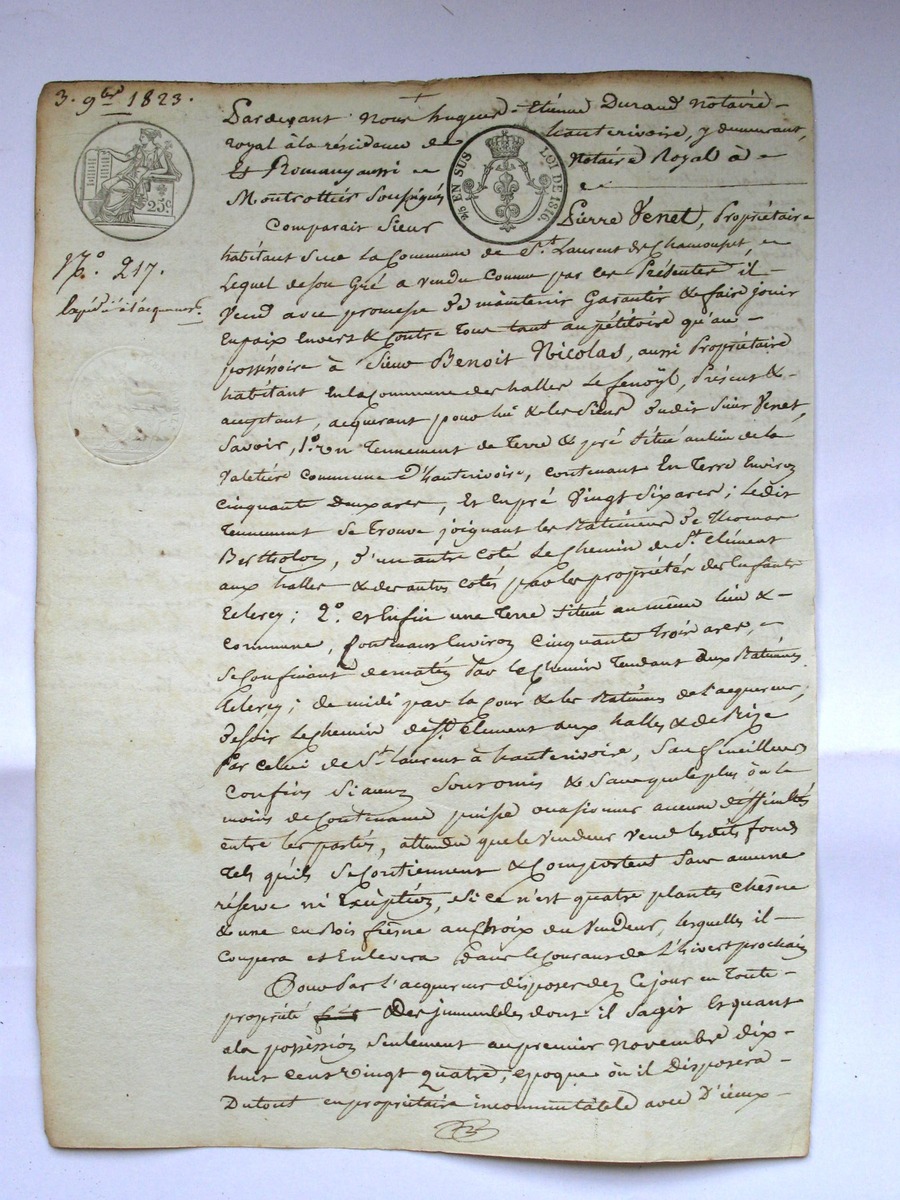 3. 9bre 1823.
25c
¼ EN SUS LOI DE 1816
No. 217.
Expédié à l'acquereur.
Pardevant Nous hugues-Etienne Durand notaire
royal à la résidence de hauterivoire, y demeurant,
Et Romany aussi notaire Royal à
Montrottier Soussignés
Comparait Sieur Pierre Venet, Propriétaire
habitant sur La Commune de St. Laurent de Chamousset,
Lequel de son Gré a vendu comme par ces Présentes il
Vend avec promesse de maintenir Garantir & faire jouir
En paix Envers & Contre Tous tant au pétitoire qu'au
possessoire à Sieur Benoit Nicolas, aussi Propriétaire
habitant En la Commune des halles Le fenoÿl, Présent &
acceptant, acquerant pour lui & les Siens dudit Sieur Venet,
Savoir, 1o. un Tennement de Terre & pré Situé au lieu de la
Valetière Commune d'hauterivoire, contenant En Terre Environ
Cinquante deux ares, Et En pré Vingt Six ares; Ledit
Tennement Se Trouve joignant les Batimens de Thomas
Bertholon, d'un autre coté Le Chemin de St. Clément
aux halles & des autres cotés par les propriétés des Enfants
Eclercy; 2o. et Enfin une Terre Située au même lieu &
Commune, Contenant Environ Cinquante trois ares,
Se Confinant de matin Par le Chemin Tendant aux Batimens
Eclercy; de midi par la Cour & les Batimens de l'acquereur,
de Soir Le Chemin de St. Clément aux halles & de Bize
Par Celui de St. Laurent à hauterivoire, Sauf meilleurs
Confins Si aucuns Sont omis & Sans que le plus ou le
moins de Contenance puisse occasionner aucune difficultés
entre les parties, attendu que le Vendeur Vend lesdits fonds
Tels qu'ils Se Contiennent & Comportent Sans aucune
réserve ni Exception, Si ce n'est quatre plantes Chesne
& une en Bois fresne au Choix du Vendeur, lesquelles il
Coupera et Enlevera dans le Courant de L'hivert prochain
Pour Par l'acquereur disposer dez Ce jour en Toute
propriété des immeubles dont il Sagit Et quant
a la possession Seulement au premier novembre dix-
huit Cent Vingt quatre, époque où il Disposera
Du tout en propriétaire incommutable avec D'ieux